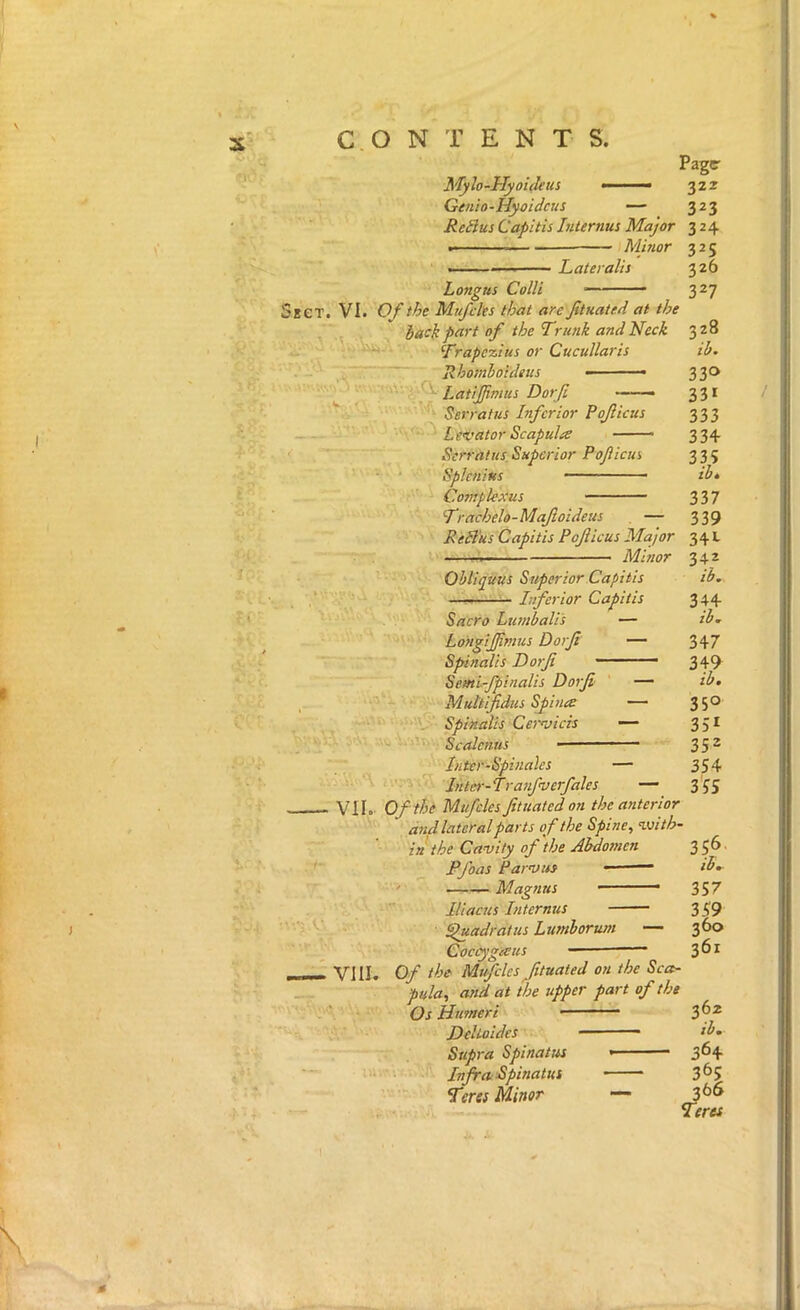 x CONTENTS.
Page
Mylo-Hyoideus —— 322
Genio-Hyoideus — 323
Rectus Capitis Internus Major 324
—— Minor 325
—— Lateralis 326
Longus Colli —— 327
Sect. VI. Of the Muſcles that are ſituated at the
back part of the Trunk and Neck 328
Trapezius or Cucullaris ib.
Rhomboideus —— 330
Latiſſimus Dorſi —— 331
Serratus Inferior Poſticus 333
Levator Scapulæ —— 334
Serratus Superior Poſticus 335
Splenius —— ib.
Complexus —— 337
Trachelo-Maſtoideus — 339
Rectus Capitis Poſticus Major 341
—— Minor 342
Obliquus Superior Capitis ib.
—— Inferior Capitis 344
Sacro Lumbalis — ib.
Longiſſimus Dorſi — 347
Spinalis Dorſi —— 349
Semi-ſpinalis Dorſi — ib.
Multifidus Spinæ — 350
Spinalis Cervicis — 351
Scalenus —— 352
Inter-Spinales — 354
Inter-Tranſverſales — 355
—— VII. Of the Muſcles ſituated on the anterior
and lateral parts of the Spine, with-
in the Cavity of the Abdomen 356
Pſoas Parvus —— ib.
—— Magnus —— 357
Iliacus Internus —— 359
Quadratus Lumborum — 360
Coccygæus —— 361
—— VIII. Of the Muſcles ſituated on the Sca-
pula, and at the upper part of the
Os Humeri —— 362
Deltoides —— ib.
Supra Spinatus —— 364
Infra Spinatus —— 365
Teres Minor — 366
Teres